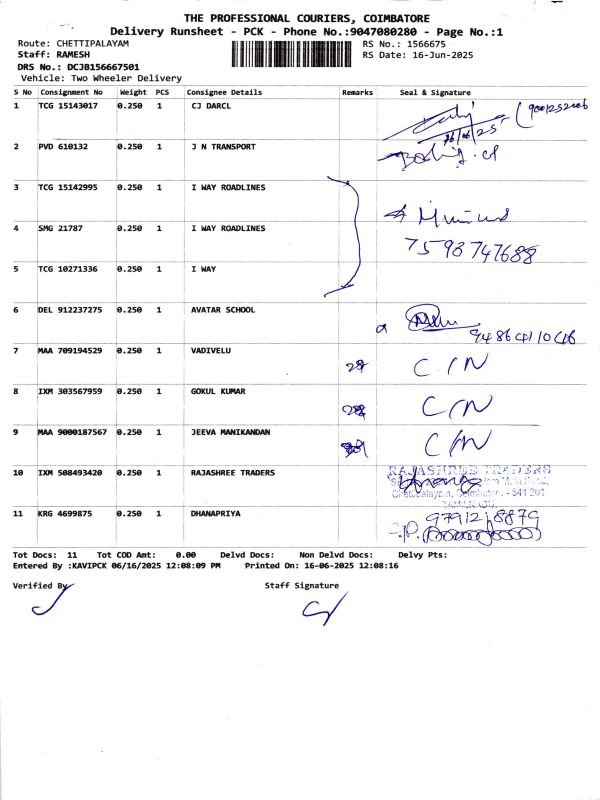 THE PROFESSIONAL COURIERS, COIMBATORE
Delivery Runsheet - PCK - Phone No.:9047080280 - Page No.:1
Route: CHETTIPALAYAM RS No.: 1566675
Staff: RAMESH RS Date: 16-Jun-2025
DRS No.: DCJB156667501
Vehicle: Two Wheeler Delivery
S No Consignment No Weight PCS Consignee Details Remarks Seal & Signature
1 TCG 15143017 0.250 1 CJ DARCL
16/06/25
2 PVD 610132 0.250 1 J N TRANSPORT
3 TCG 15142995 0.250 1 I WAY ROADLINES
4 SMG 21787 0.250 1 I WAY ROADLINES
7598747688
5 TCG 10271336 0.250 1 I WAY
6 DEL 912237275 0.250 1 AVATAR SCHOOL
7 MAA 709194529 0.250 1 VADIVELU C/N
8 IXM 303567959 0.250 1 GOKUL KUMAR C/N
9 MAA 9000187567 0.250 1 JEEVA MANIKANDAN C/N
10 IXM 508493420 0.250 1 RAJASHREE TRADERS RAJASHREE TRADERS
11 KRG 4699875 0.250 1 DHANAPRIYA
Tot Docs: 11 Tot COD Amt: 0.00 Delvd Docs: Non Delvd Docs: Delvy Pts:
Entered By :KAVIPCK 06/16/2025 12:08:09 PM Printed On: 16-06-2025 12:08:16
Verified By Staff Signature